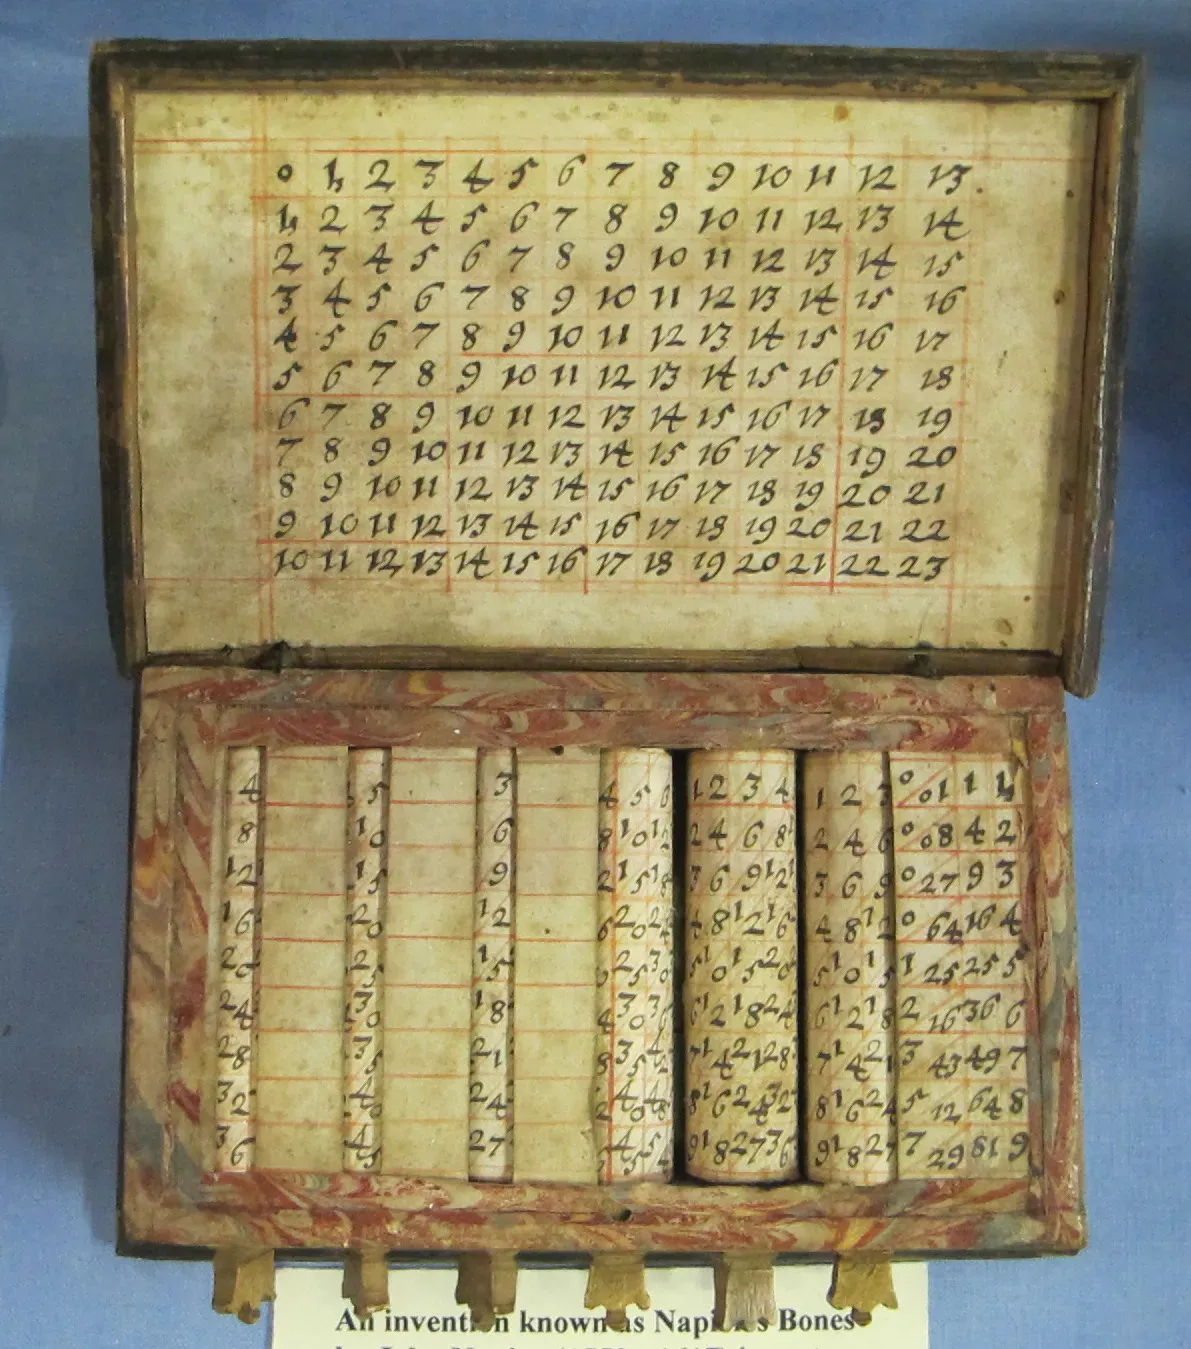 0 1 2 3 4 5 6 7 8 9 10 11 12 13.
1 2 3 4 5 6 7 8 9 10 11 12 13 14
2 3 4 5 6 7 8 9 10 11 12 13 14 15
3 4 5 6 7 8 9 10 11 12 13 14 15 16
4 5 6 7 8 9 10 11 12 13 14 15 16 17
5 6 7 8 9 10 11 12 13 14 15 16 17 18
6 7 8 9 10 11 12 13 14 15 16 17 18 19
7 8 9 10 11 12 13 14 15 16 17 18 19 20
8 9 10 11 12 13 14 15 16 17 18 19 20 21
9 10 11 12 13 14 15 16 17 18 19 20 21 22
10 11 12 13 14 15 16 17 18 19 20 21 22 23
4 5 3 4 5 6 1 2 3 4 1 2 3 0 01 1 1
8 10 6 8 10 12 2 4 6 8 2 4 6 0 08 4 2
12 15 9 2 15 18 3 6 9 12 3 6 9 0 27 9 3
16 20 12 6 20 24 4 8 12 16 4 8 12 0 64 16 4
20 25 15 0 25 30 5 10 15 20 5 10 15 1 25 25 5
24 30 18 4 30 36 6 12 18 24 6 12 18 2 16 36 6
28 35 21 8 35 42 7 14 21 28 7 14 21 3 43 49 7
32 40 24 2 40 48 8 16 24 32 8 16 24 5 12 64 8
36 45 27 45 54 9 18 27 36 9 18 27 7 29 81 9
An invention known as Napier's Bones